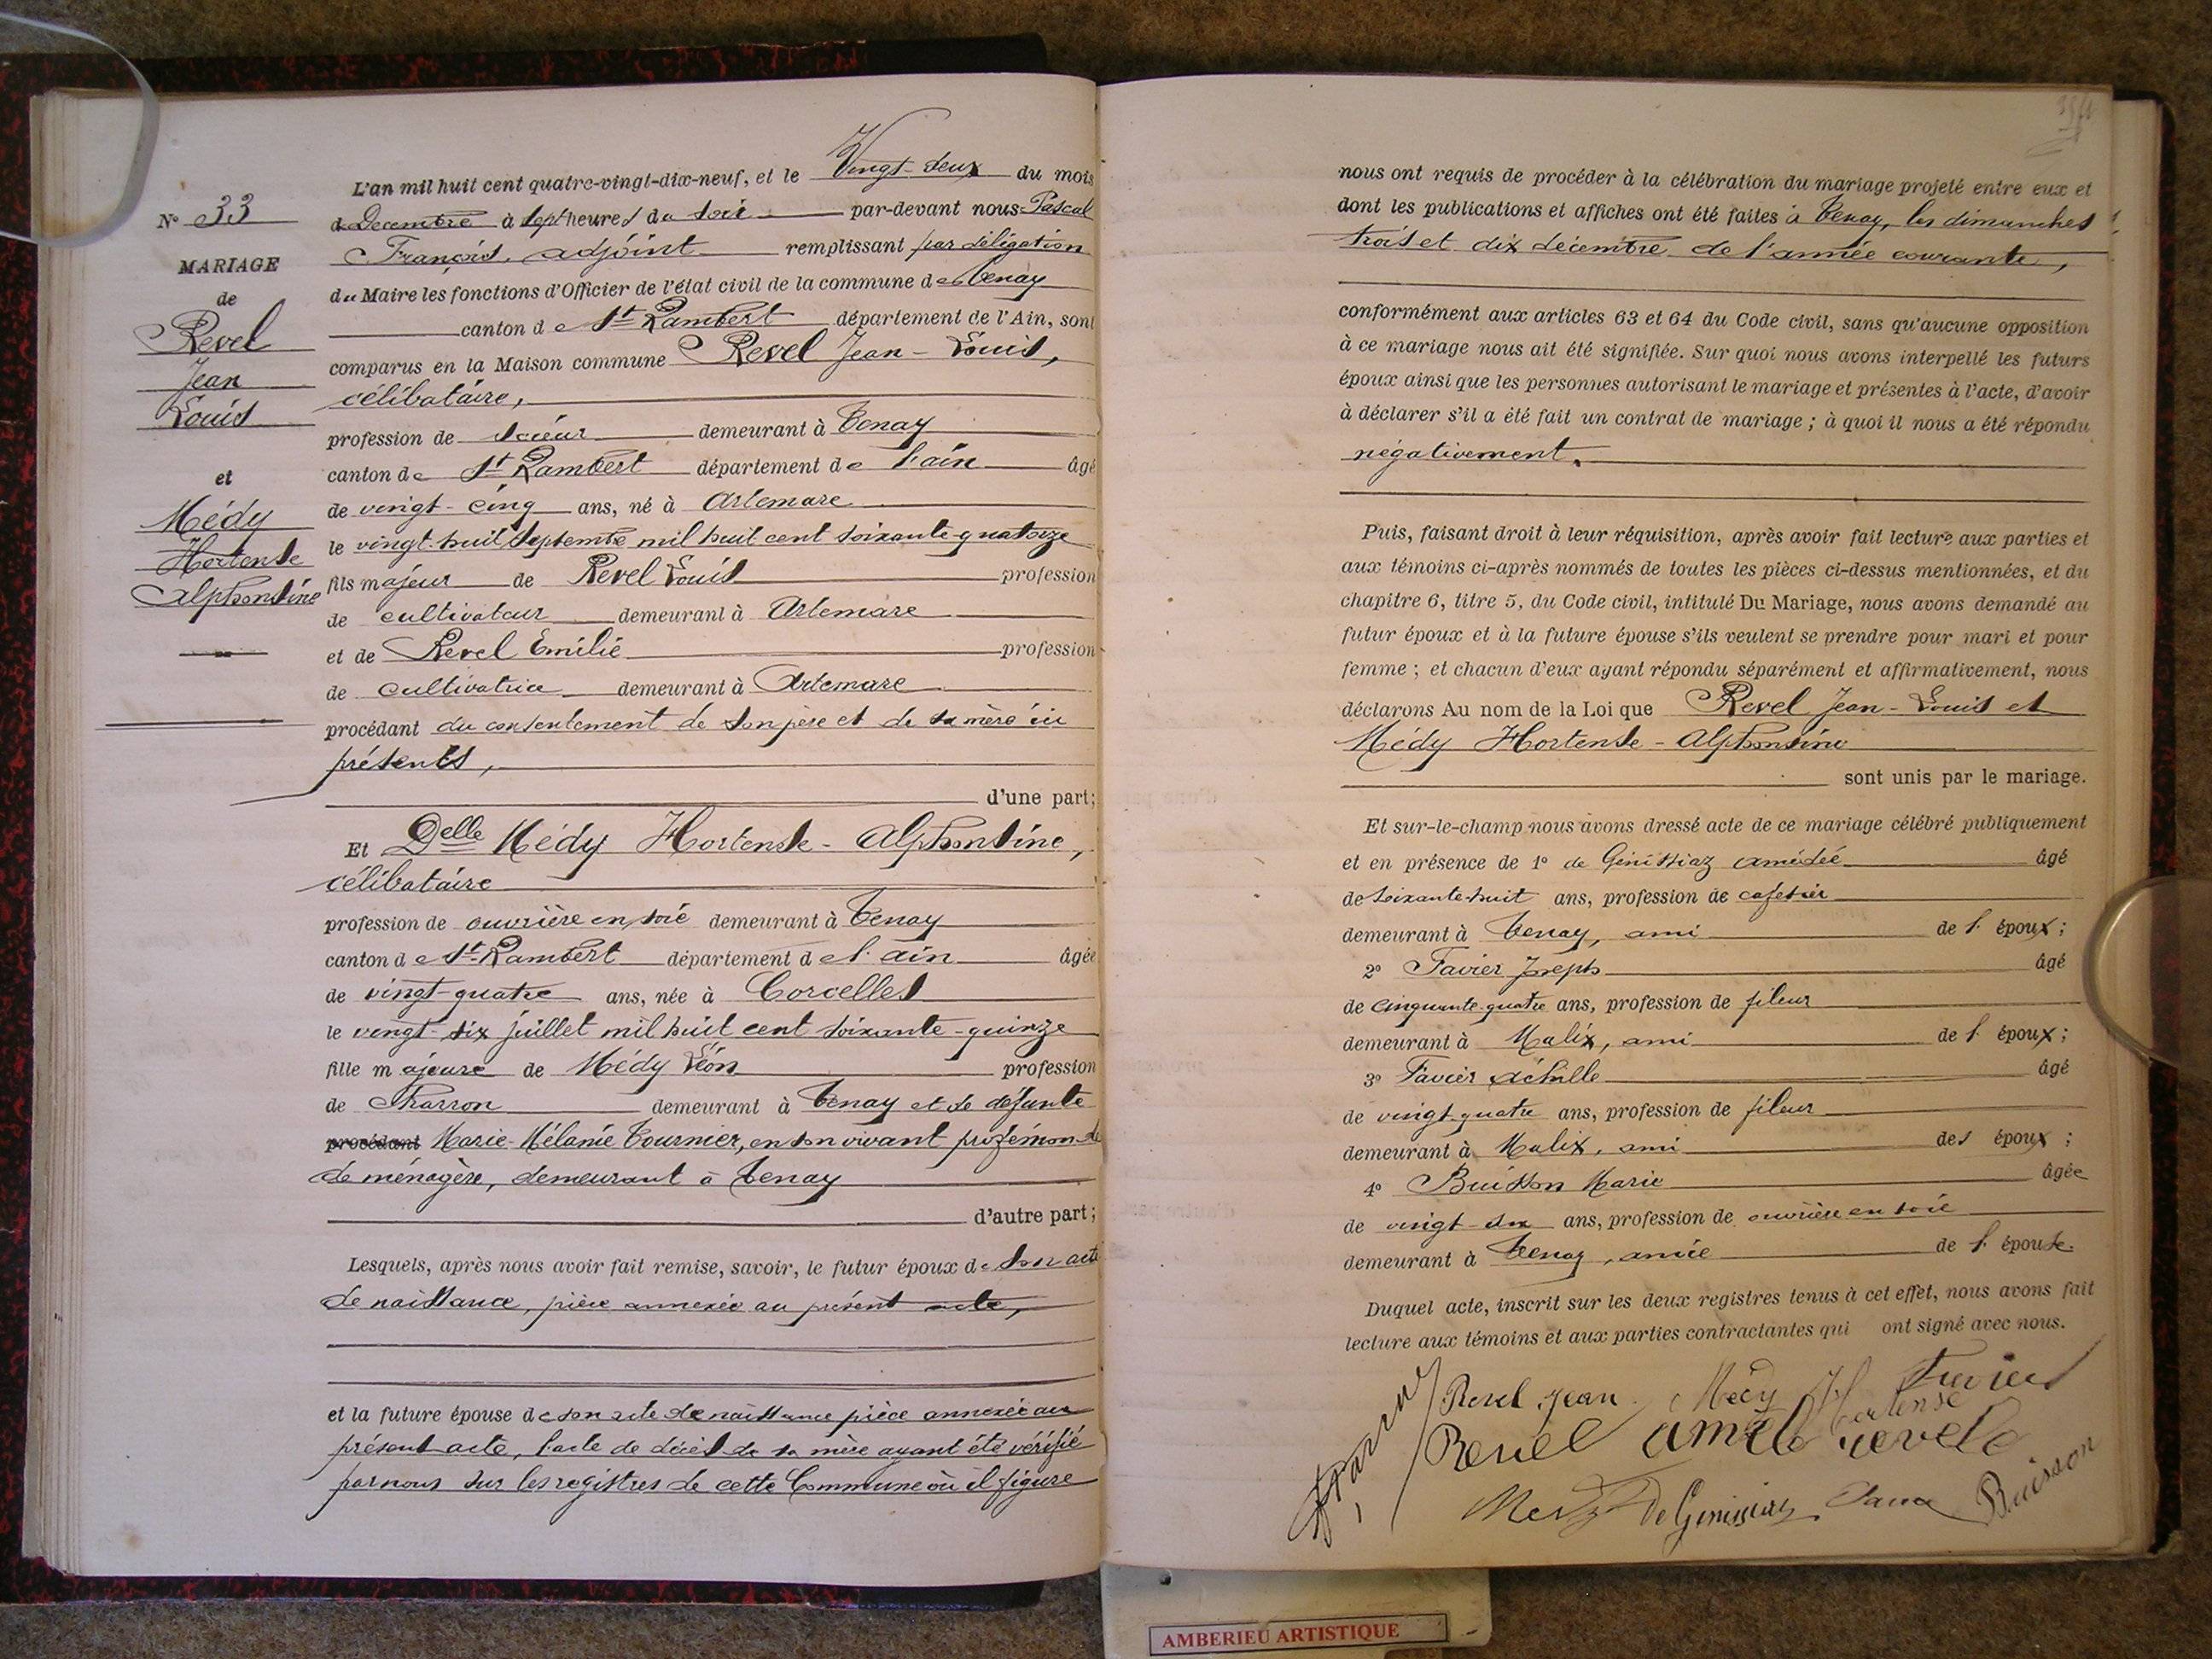 N° 33
MARIAGE
de
Revel
Jean
Louis
et
Médy
Hortense
Alphonsine
L'an mil huit cent quatre-vingt-dix-neuf, et le Vingt-deux du mois
de Décembre à Sept heures du soir par-devant nous Pascal
François, adjoint remplissant par délégation
du Maire les fonctions d'Officier de l'état civil de la commune de Tenay
canton de St Rambert département de l'Ain, sont
comparus en la Maison commune Revel Jean-Louis,
célibataire,
profession de scieur demeurant à Tenay
canton de St Rambert département de l'ain âgé
de vingt-cinq ans, né à Artemare
le vingt-huit Septembre mil huit cent soixante-quatorze
fils majeur de Revel Louis profession
de cultivateur demeurant à Artemare
et de Revel Emilie profession
de cultivatrice demeurant à Artemare
procédant du consentement de son père et de sa mère ici
présents,
d'une part;
Et Delle Médy Hortense-Alphonsine,
célibataire
profession de ouvrière en soie demeurant à Tenay
canton de St-Rambert département de l'ain âgée
de vingt-quatre ans, née à Corcelles
le vingt-six juillet mil huit cent soixante-quinze
fille majeure de Médy Léon profession
de Charron demeurant à Tenay et de défunte
procédant Marie-Mélanie Tournier, en son vivant profession de
de ménagère, demeurant à Tenay
d'autre part;
Lesquels, après nous avoir fait remise, savoir, le futur époux de Son acte
de naissance, pièce annexée au présent acte,
et la future épouse de son acte de naissance pièce annexée au
présent acte, l'acte de décès de sa mère ayant été vérifié
par nous sur les registres de cette Commune où il figure
nous ont requis de procéder à la célébration du mariage projeté entre eux et
dont les publications et affiches ont été faites à Tenay, les dimanches
trois et dix décembre de l'année courante,
conformément aux articles 63 et 64 du Code civil, sans qu'aucune opposition
à ce mariage nous ait été signifiée. Sur quoi nous avons interpellé les futurs
époux ainsi que les personnes autorisant le mariage et présentes à l'acte, d'avoir
à déclarer s'il a été fait un contrat de mariage ; à quoi il nous a été répondu
négativement.
Puis, faisant droit à leur réquisition, après avoir fait lecture aux parties et
aux témoins ci-après nommés de toutes les pièces ci-dessus mentionnées, et du
chapitre 6, titre 5, du Code civil, intitulé Du Mariage, nous avons demandé au
futur époux et à la future épouse s'ils veulent se prendre pour mari et pour
femme ; et chacun d'eux ayant répondu séparément et affirmativement, nous
déclarons Au nom de la Loi que Revel Jean-Louis et
Médy Hortense-Alphonsine
sont unis par le mariage.
Et sur-le-champ nous avons dressé acte de ce mariage célébré publiquement
et en présence de 1° de Génissiaz Amédée âgé
de soixante-huit ans, profession de cafetier
demeurant à Tenay, ami de l'époux ;
2° Favier Joseph âgé
de cinquante-quatre ans, profession de fileur
demeurant à Malix, ami de l'époux ;
3° Favier Achille âgé
de vingt-quatre ans, profession de fileur
demeurant à Malix, ami des époux ;
4° Buisson Marie âgée
de vingt- ans, profession de ouvrière en soie
demeurant à Tenay, amie de l'épouse.
Duquel acte, inscrit sur les deux registres tenus à cet effet, nous avons fait
lecture aux témoins et aux parties contractantes qui ont signé avec nous.
Revel Jean Médy Hortense Favier
Revel
Medy De Genissiaz Buisson
AMBERIEU ARTISTIQUE